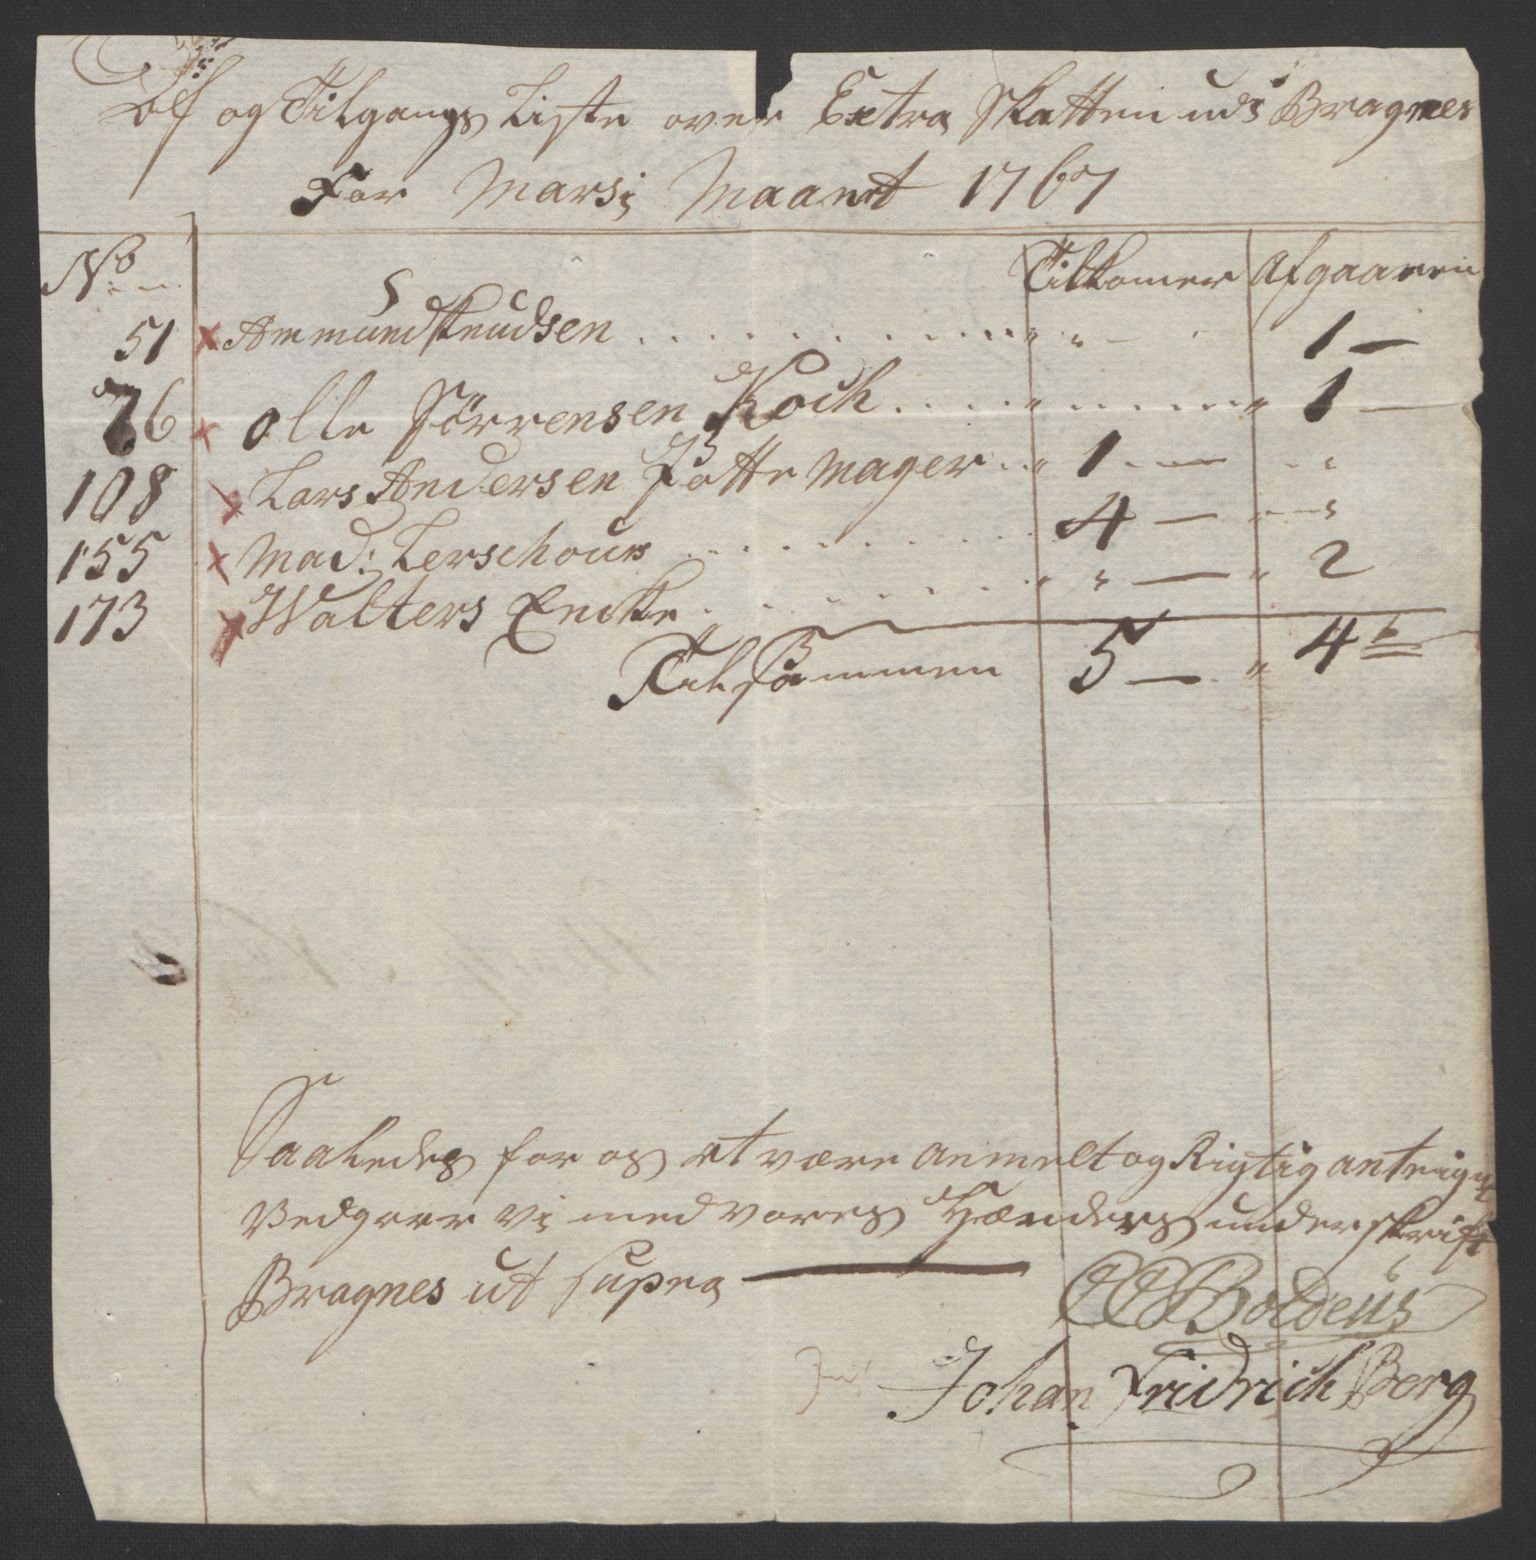 Af og Tilgangs Liste over Extra Skatten udi Bragnes
For Marsi Maanet 1767
No Tilkomer Afgaaren
51 Ammund Knudsen . . . . " " — 1 —
76 Olle Sörrensen Koch . . . . " " 1 —
108 Lars Andersen Potte mager . . " 1 — " "
155 Mad: Lerschous . . . . 4 — " "
173 Walters Encke . . . . " " — " 2
Tilsammen 5 — " 4
Saaledes for os at være anmelt og Rigtig anteignet
Vedgaar vi med vores Hænders underskrift
Bragnes ut supra —
Boldeus
Johan Fridrich Berg